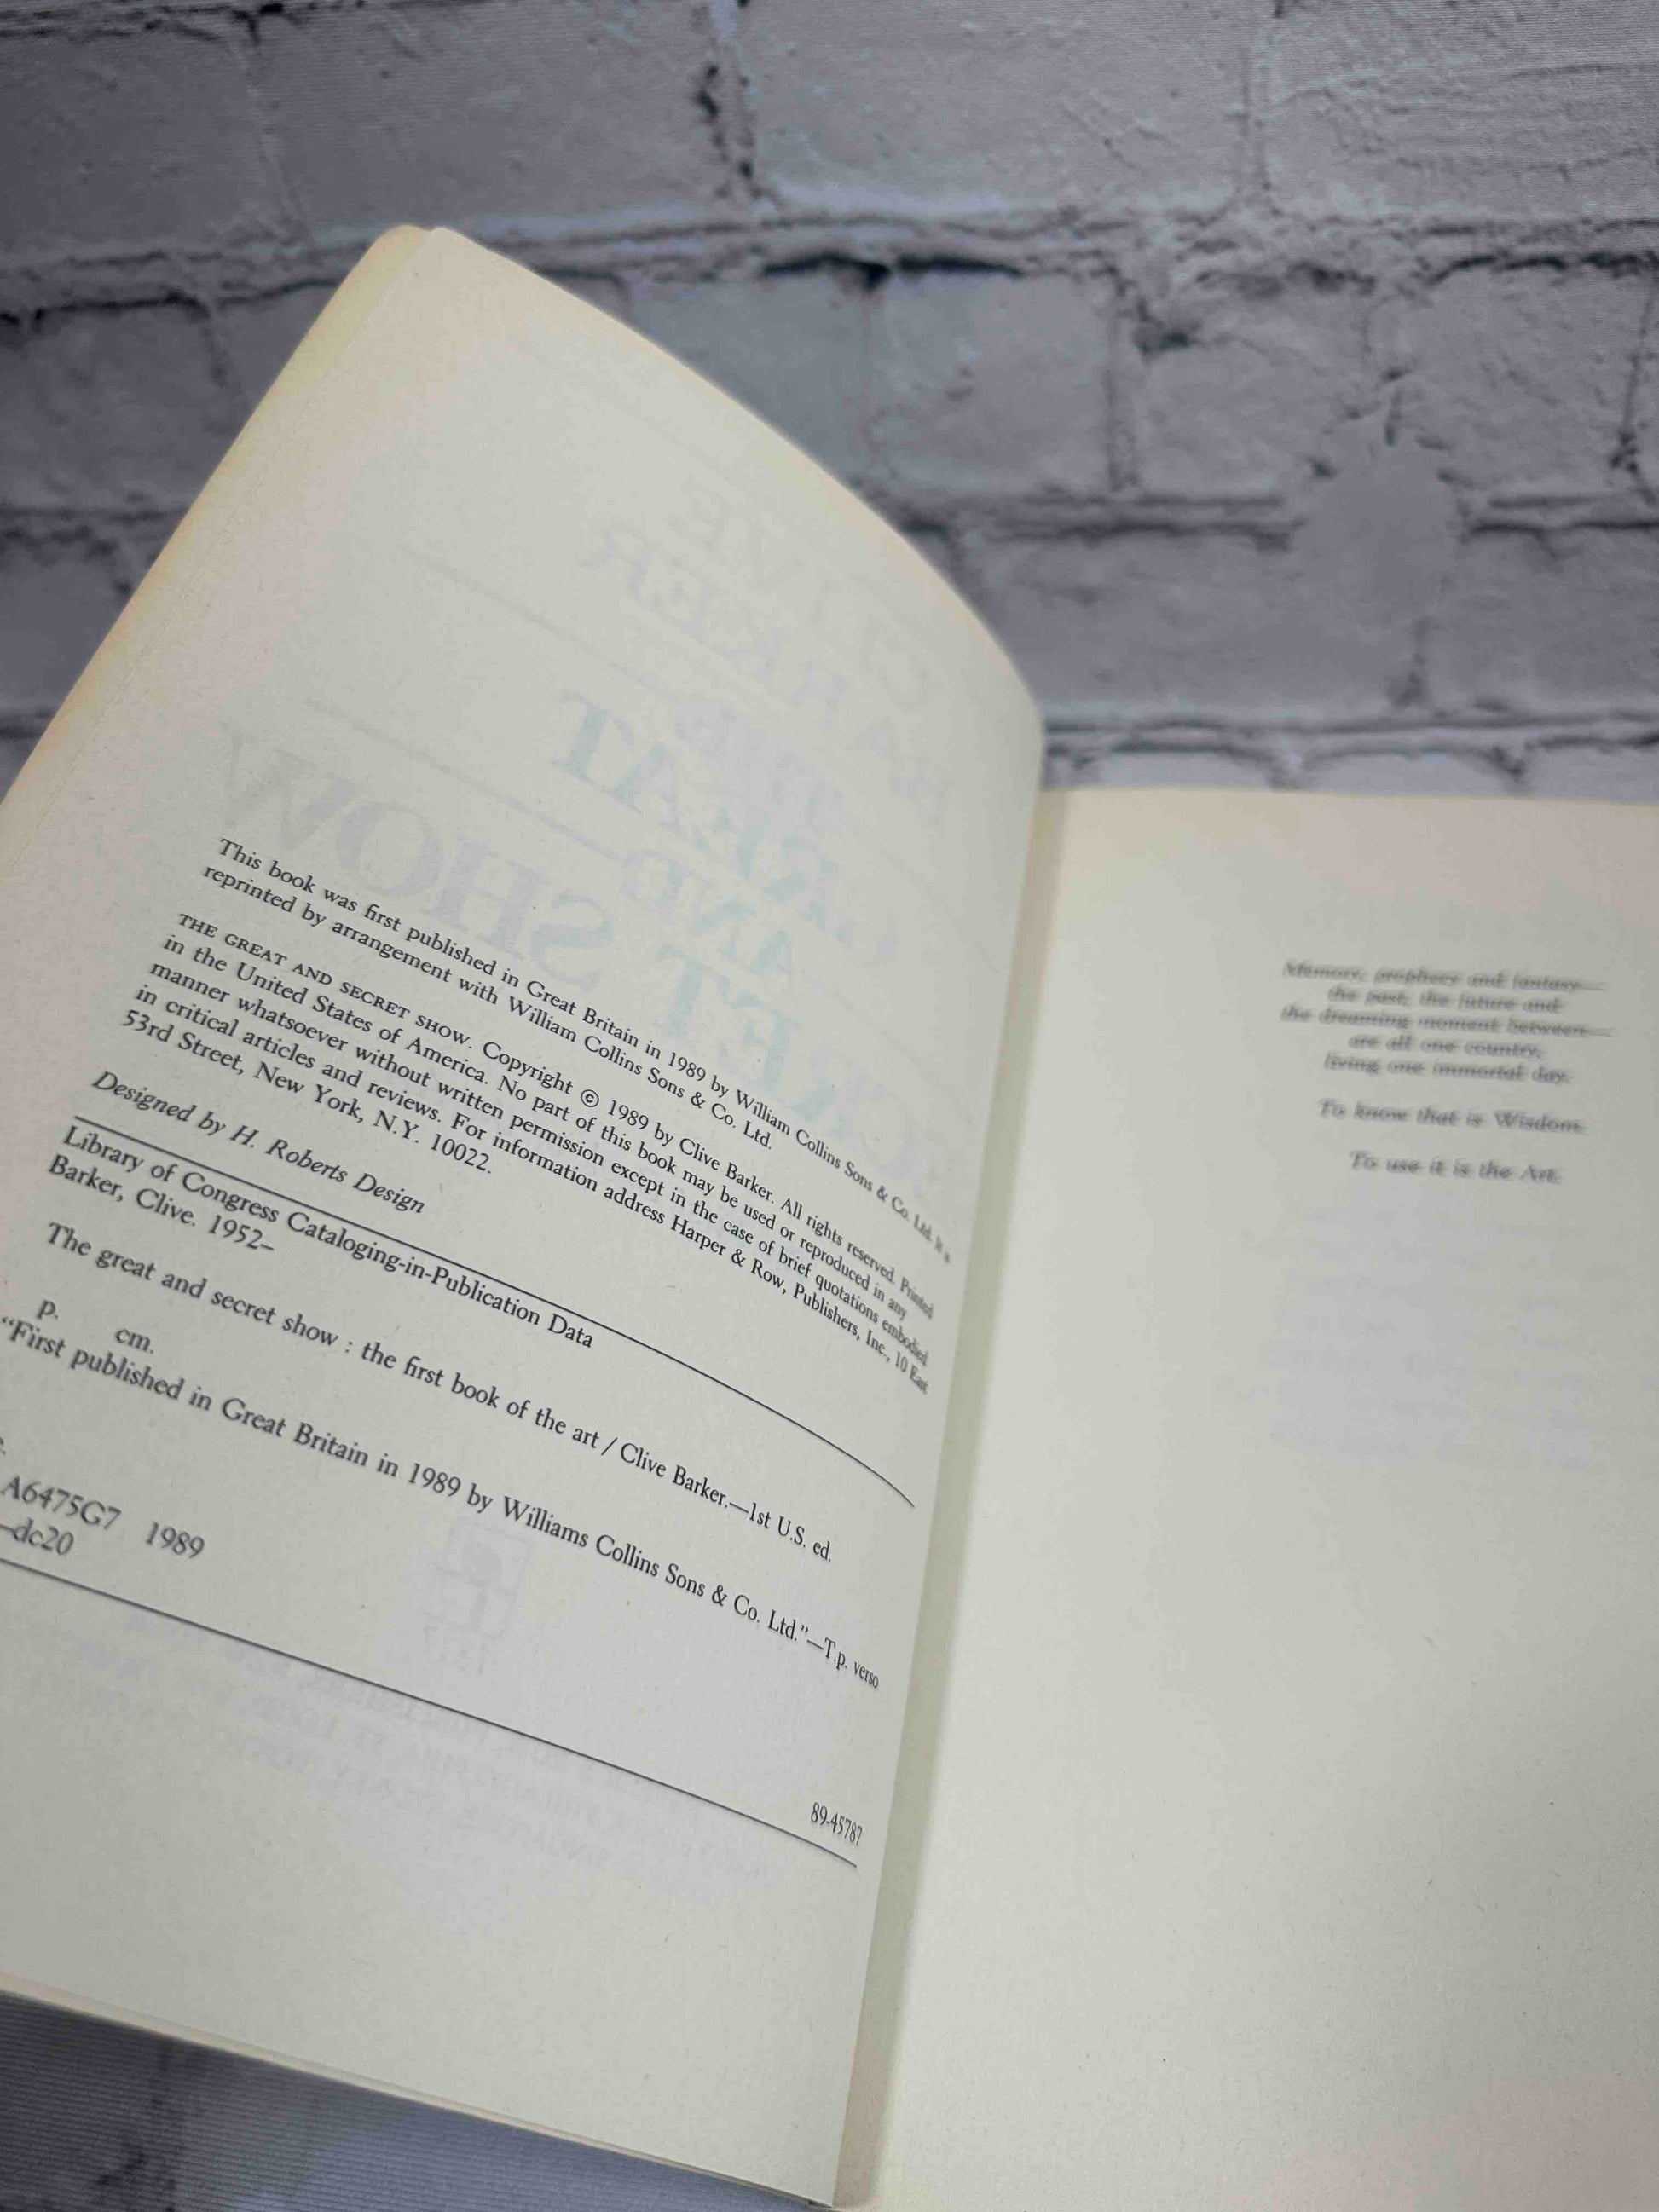 This book was first published in Great Britain in 1989 by William Collins Sons & Co. Ltd. It is
reprinted by arrangement with William Collins Sons & Co. Ltd.
THE GREAT AND SECRET SHOW. Copyright © 1989 by Clive Barker. All rights reserved. Printed
in the United States of America. No part of this book may be used or reproduced in any
manner whatsoever without written permission except in the case of brief quotations embodied
in critical articles and reviews. For information address Harper & Row, Publishers, Inc., 10 East
53rd Street, New York, N.Y. 10022.
Designed by H. Roberts Design
Library of Congress Cataloging-in-Publication Data
Barker, Clive. 1952–
The great and secret show : the first book of the art / Clive Barker.—1st U.S. ed.
p. cm.
“First published in Great Britain in 1989 by Williams Collins Sons & Co. Ltd.”—T.p. verso
A6475G7 1989
–dc20
89-45787
Memory, prophecy and fantasy—
the past, the future and
the dreaming moment between—
are all one country,
living one immortal day.
To know that is Wisdom.
To use it is the Art.